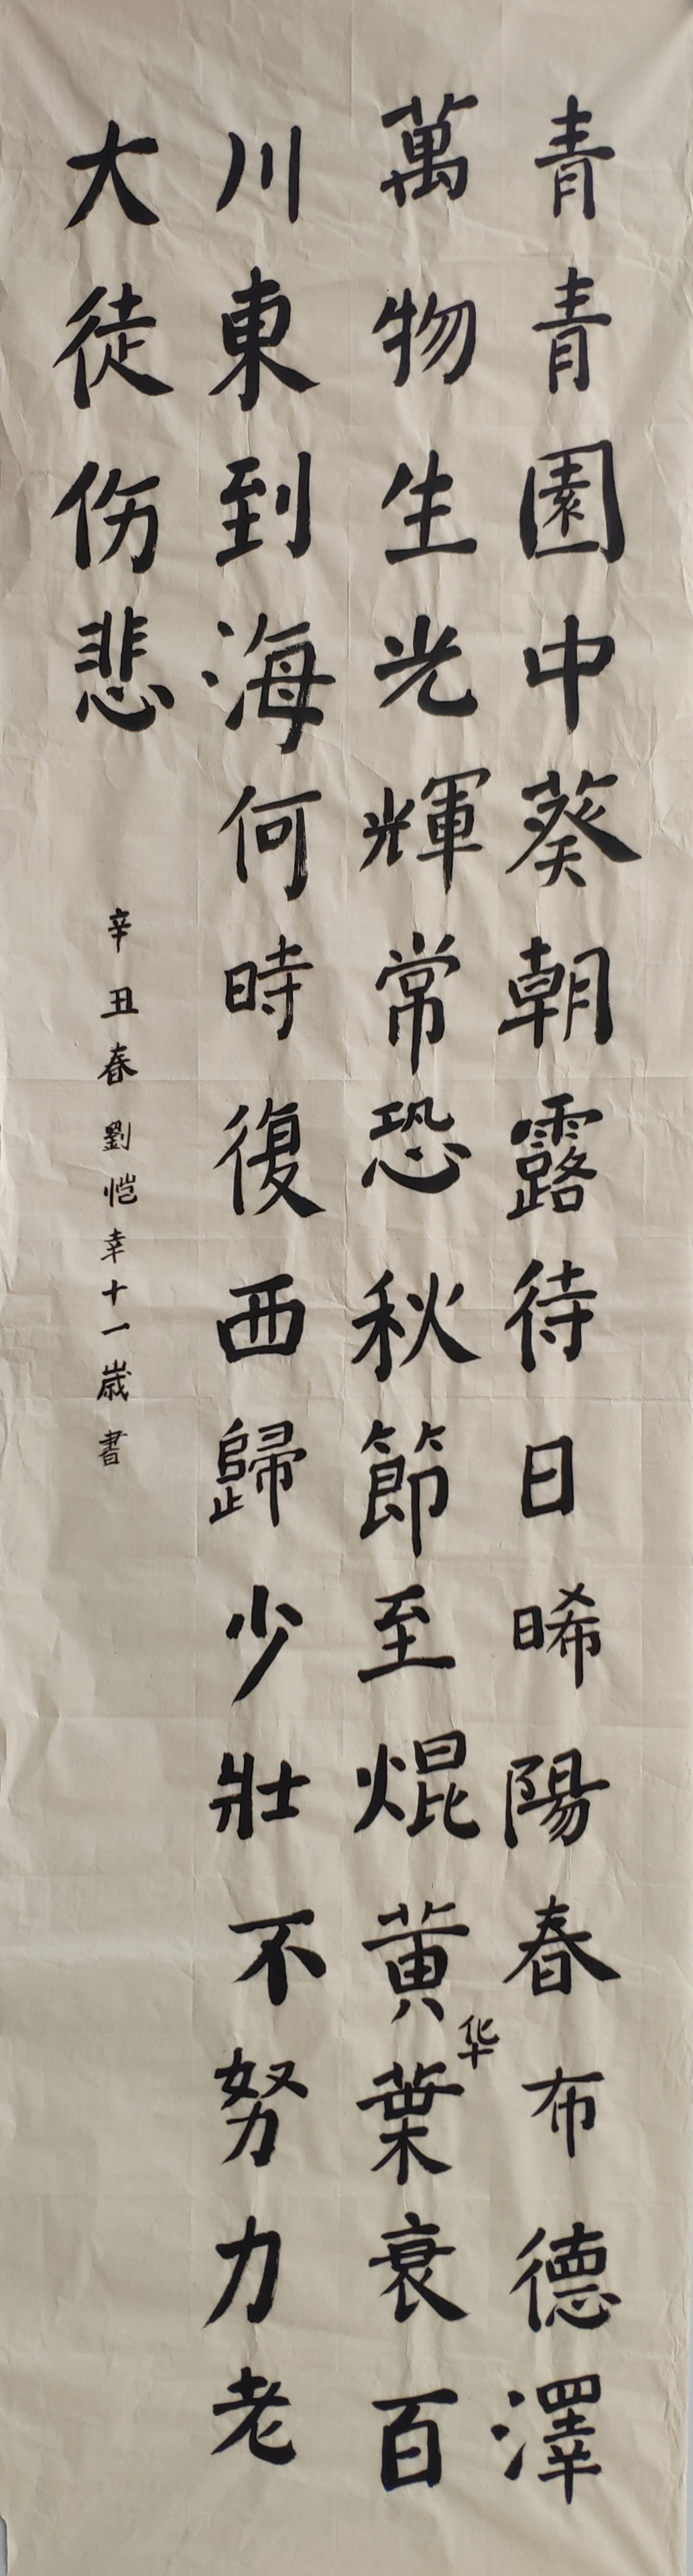 青青園中葵朝露待日晞陽春布德澤
萬物生光輝常恐秋節至焜黃華葉衰百
川東到海何時復西歸少壯不努力老
大徒伤悲
辛丑春劉恺幸十一歲書